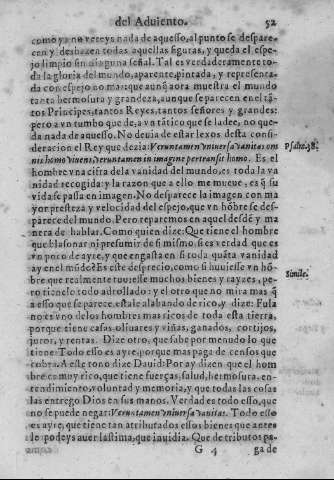 del Aduiento. 52
como ya no vereys nada de aquesso, al punto se despare-
cen y deshazen todas aquellas figuras, y queda el espe-
jo limpio sin ninguna señal. Tal es verdaderamente to-
da la gloria del mundo, aparente, pintada, y representa-
da con espejo no mas: que aunq̃ aora muestra el mundo
tanta hermosura y grandeza, aunque se parecen en el tã-
tos Principes, tantos Reyes, tantos señores y grandes:
pero a vn tumbo que de, a vn tatico que se ladee, no que-
da nada de aquesso. No deuia de estar lexos desta consi-
deracion el Rey que dezia: Veruntamen vniuersa vanitas om
nis homo viuens, veruntamen in imagine pertransit homo. Es el
Psalm. 38.
hombre vna cifra de la vanidad del mundo, es toda la va
nidad recogida: y la razon que a ello me mueue, es q̃ su
vida se passa en imagen. No desparece la imagen con ma
yor presteza y velocidad del espejo, que vn hõbre se des-
parece del mundo. Pero reparemos en aquel desde y ma
nera de hablar. Como quien dize: Que tiene el hombre
que blasonar ni presumir de si mismo, si es verdad que es
vn poco de ayre, y que engasta en si toda quãta vanidad
ay en el mũdo? Es este desprecio, como si huuiesse vn hõ-
bre que realmente tuuiesse muchos bienes y rayzes, pe-
Simile.
ro tienelo todo adrollado: y el otro que no mira mas q̃
a esso que se parece, estale alabando de rico, y dize: Fula
no es vno de los hombres mas ricos de toda esta tierra,
porque tiene casas, oliuares y viñas, ganados, cortijos,
juros, y rentas. Dize otro, que sabe por menudo lo que
tiene: Todo esso es ayre, porque mas paga de censos que
cobra. A este tono dize Dauid: Por ay dizen que el hom
bre es muy rico, que tiene fuerças, salud, hermosura, en-
tendimiento, voluntad y memoria, y que todas las cosas
las entrego Dios en sus manos. Verdad es todo esso, que
no se puede negar: Veruntamen vniuersa vanitas. Todo esso
es ayre, que tiene tan atributados essos bienes que antes
le podeys auer lastima, que inuidia. Que de tributos pa-
G 4 ga de